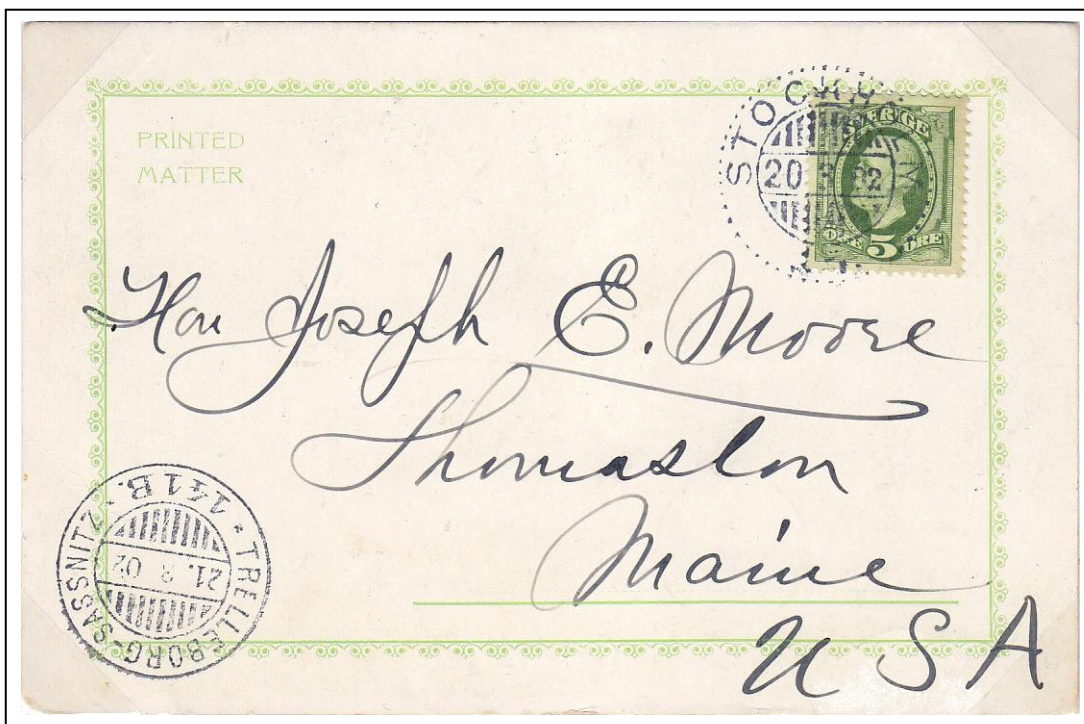 PRINTED
MATTER
STOCKH
20
SVERIGE
5
ÖRE
Hon Joseph E. Moore
Thomaston
Maine
U S A
TRELLEBORG-SASSNITZ
141 B.
21. 02